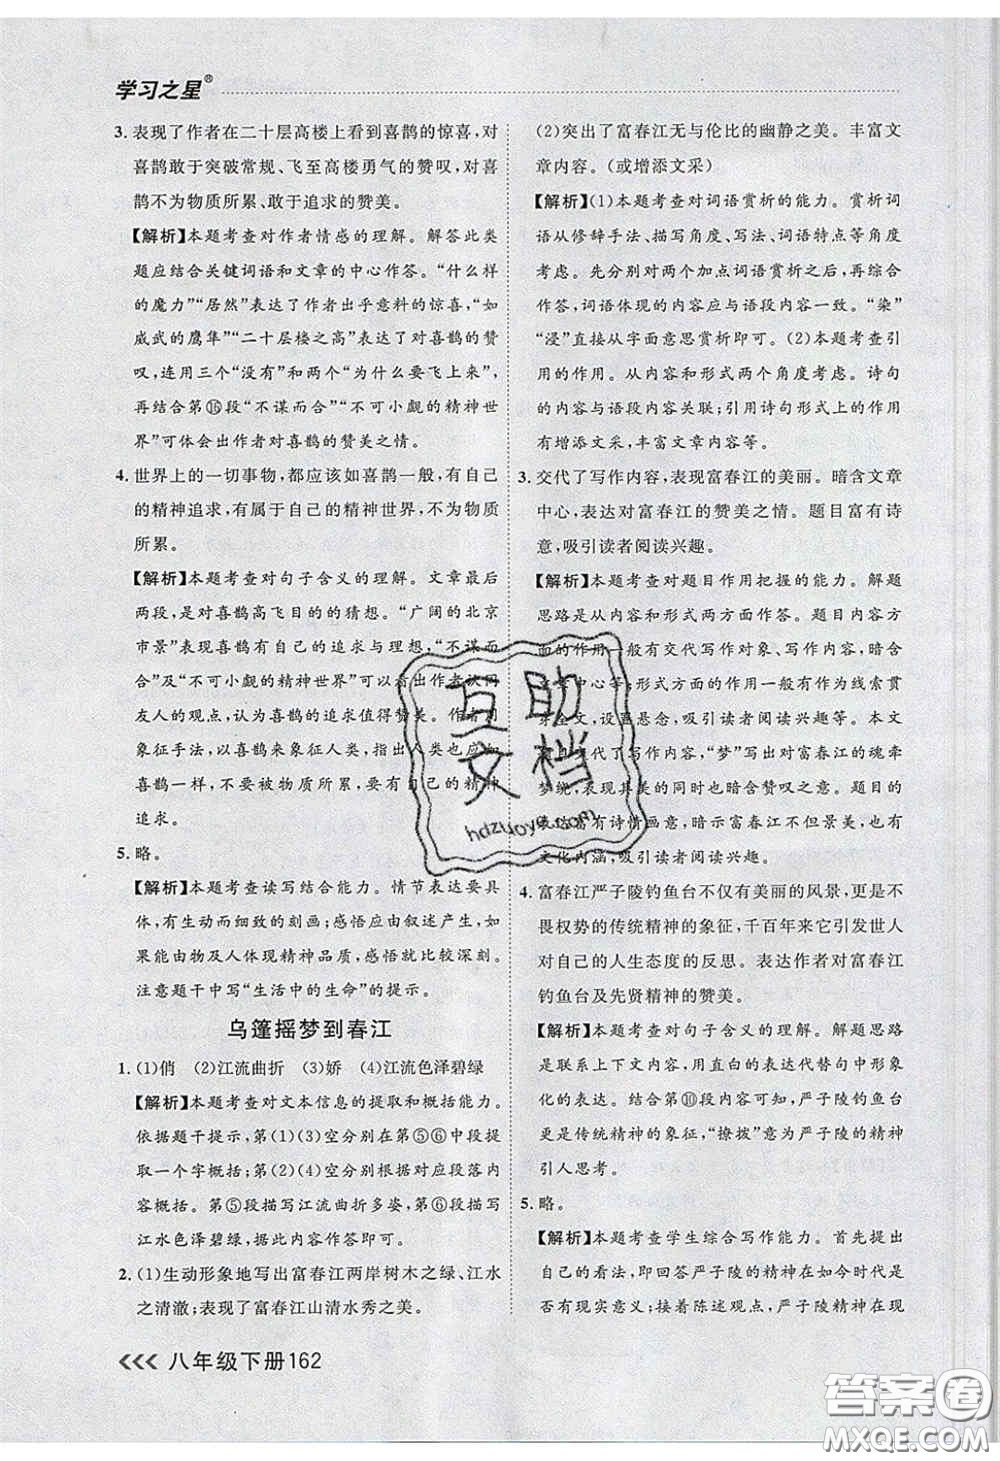 学习之星®
3. 表现了作者在二十层高楼上看到喜鹊的惊喜，对
喜鹊敢于突破常规、飞至高楼勇气的赞叹，对喜
鹊不为物质所累、敢于追求的赞美。
【解析】本题考查对作者情感的理解。解答此类
题应结合关键词语和文章的中心作答。“什么样
的魔力”“居然”表达了作者出乎意料的惊喜，“如
威武的鹰隼”“二十层楼之高”表达了对喜鹊的赞
叹，连用三个“没有”和两个“为什么要飞上来”，
再结合第⑯段“不谋而合”“不可小觑的精神世
界”可体会出作者对喜鹊的赞美之情。
4. 世界上的一切事物，都应该如喜鹊一般，有自己
的精神追求，有属于自己的精神世界，不为物质
所累。
【解析】本题考查对句子含义的理解。文章最后
两段，是对喜鹊高飞目的的猜想。“广阔的北京
市景”表现喜鹊有自己的追求与理想，“不谋而
合”及“不可小觑的精神世界”可以看出作者认同
友人的观点，认为喜鹊的追求值得赞美。作者用
象征手法，以喜鹊来象征人类，指出人类也应如
喜鹊一样，不要为物质所累，要有自己的精神
追求。
5. 略。
【解析】本题考查读写结合能力。情节表达要具
体，有生动而细致的刻画；感悟应由叙述产生，如
果能由物及人体现精神品质，感悟就比较深刻。
注意题干中写“生活中的生命”的提示。
乌篷摇梦到春江
1. (1)俏 (2)江流曲折 (3)娇 (4)江流色泽碧绿
【解析】本题考查对文本信息的提取和概括能力。
依据题干提示，第(1)(3)空分别在第⑤⑥中段提
一个字概括；第(2)(4)空分别概括对应段落内
容概括。第⑤段描写江流曲折多姿，第⑥段描写
江水色泽碧绿，据此内容作答即可。
2. (1)生动形象地写出富春江两岸树木之绿、江水
之清澈；表现了富春江山清水秀之美。
(2)突出了富春江无与伦比的幽静之美。丰富文
章内容。(或增添文采)
【解析】(1)本题考查对词语赏析的能力。赏析词
语从修辞手法、描写角度、写法、词语特点等角度
考虑。先分别对两个加点词语赏析之后，再综合
作答，词语体现的内容应与语段内容一致。“染”
“浸”直接从字面意思赏析即可。(2)本题考查引
用的作用。从内容和形式两个角度考虑。诗句
的内容与语段内容关联；引用诗句形式上的作用
有增添文采，丰富文章内容等。
3. 交代了写作内容，表现富春江的美丽。暗含文章
中心，表达对富春江的赞美之情。题目富有诗
意，吸引读者阅读兴趣。
【解析】本题考查对题目作用把握的能力。解题
思路是从内容和形式两方面作答。题目内容方
面的作用一般有交代写作对象、写作内容，暗含
文章中心等；形式方面的作用一般有作为线索贯
穿全文，设置悬念，吸引读者阅读兴趣等。本文
交代了写作内容，“梦”写出对富春江的魂牵
梦绕，表现其美的同时也暗含赞叹之意。题目的
表达富有诗情画意，暗示富春江不但景美，也有
文化内涵，吸引读者阅读兴趣。
4. 富春江严子陵钓鱼台不仅有美丽的风景，更是不
畏权势的传统精神的象征，千百年来它引发世人
对自己的人生态度的反思。表达作者对富春江
钓鱼台及先贤精神的赞美。
【解析】本题考查对句子含义的理解。解题思路
是联系上下文内容，用直白表达代替句中形象化
的表达。结合第⑩段内容可知，严子陵钓鱼台
更是传统精神的象征，“撩拨”意为严子陵精神
引人思考。
5. 略。
【解析】本题考查学生综合写作能力。首先提出
自己的看法，即回答严子陵的精神在如今时代是
否有现实意义；接着陈述观点，严子陵精神在现
八年级下册162
互助
文档
hdzuoye.com
答案圈
MXQE.COM